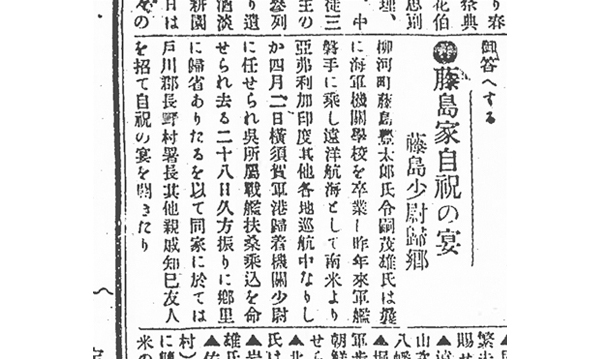 り春
祭典
花伯
思則
理、
中
徒三
主の
祭列
り遺
酒淡
耕園
日は
々の
御答へする
藤島家自祝の宴
藤島少尉歸郷
柳河町藤島豊太郎氏令嗣茂雄氏は曩
に海軍機關學校を卒業し昨年來軍艦
磐手に乘し遠洋航海として南米より
亞弗利加印度其他各地巡航中なりし
か四月二日横須賀軍港歸着機關少尉
に任せられ呉所屬戰艦扶桑乘込を命
せられ去る二十八日久方振りに郷里
に歸省ありたるを以て同家に於ては
戸川郡長野村署長其他親戚知巳友人
を招て自祝の宴を開きたり
賜せ
▲遠
八幡
山寺
▲堀
軍步
朝鮮
せら
▲北
氏は
▲岩
雄氏
▲佐
村）
に
米の